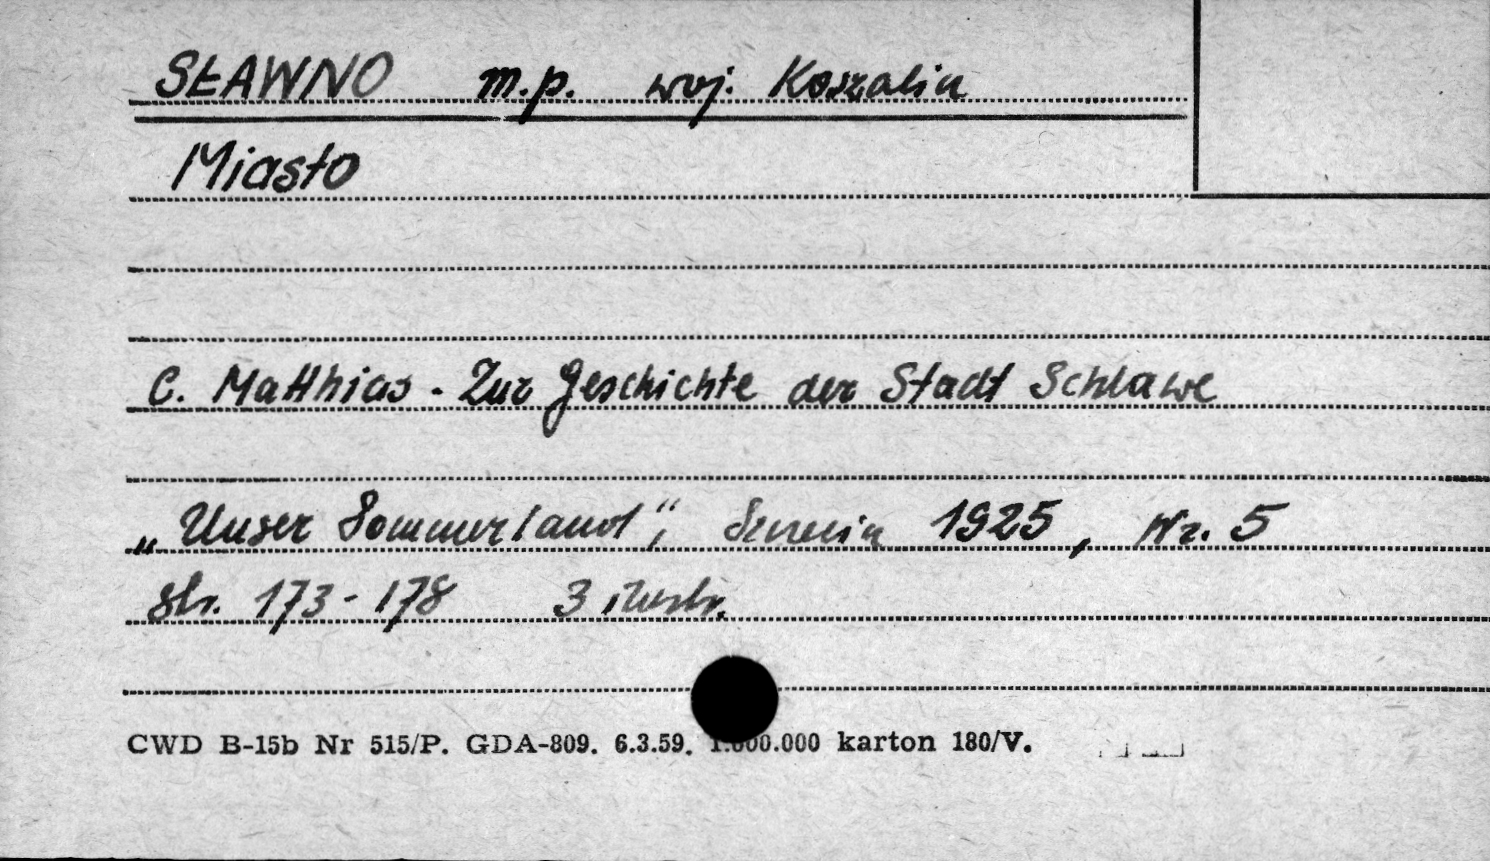 SŁAWNO m.p. woj. Koszalin
Miasto
C. Matthias - Zur Geschichte der Stadt Schlawe
„Unser Pommerland", Szczecin 1925, Nr. 5
str. 173-178 3 ilustr.
CWD B-15b Nr 515/P. GDA-809. 6.3.59. 1.000.000 karton 180/V.